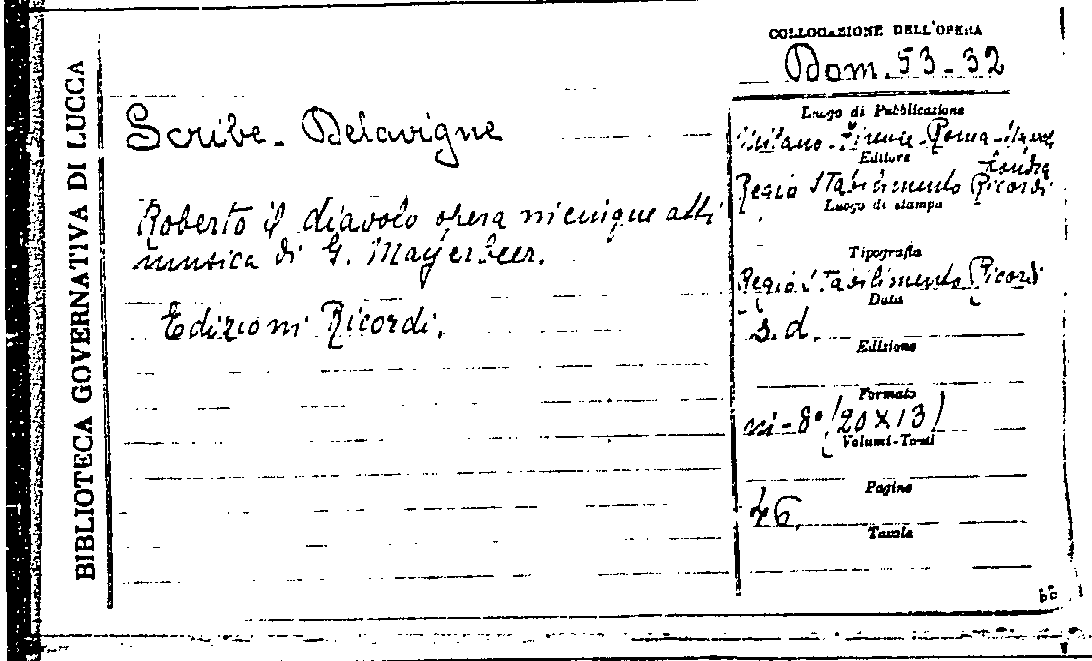 BIBLIOTECA GOVERNATIVA DI LUCCA
COLLOCAZIONE DELL'OPERA
Dom. 53-32
Scribe - Delavigne
Roberto il diavolo opera in cinque atti
musica di G. Mayerbeer.
Edizioni Ricordi.
Luogo di Pubblicazione
Milano - Firenze - Roma - Napoli
Londra
Editore
Regio Stabilimento Ricordi
Luogo di stampa
Tipografia
Regio Stabilimento Ricordi
Data
s. d.
Edizione
Formato
in-8° (20 x 13)
Volumi-Tomi
Pagine
46
Tavole